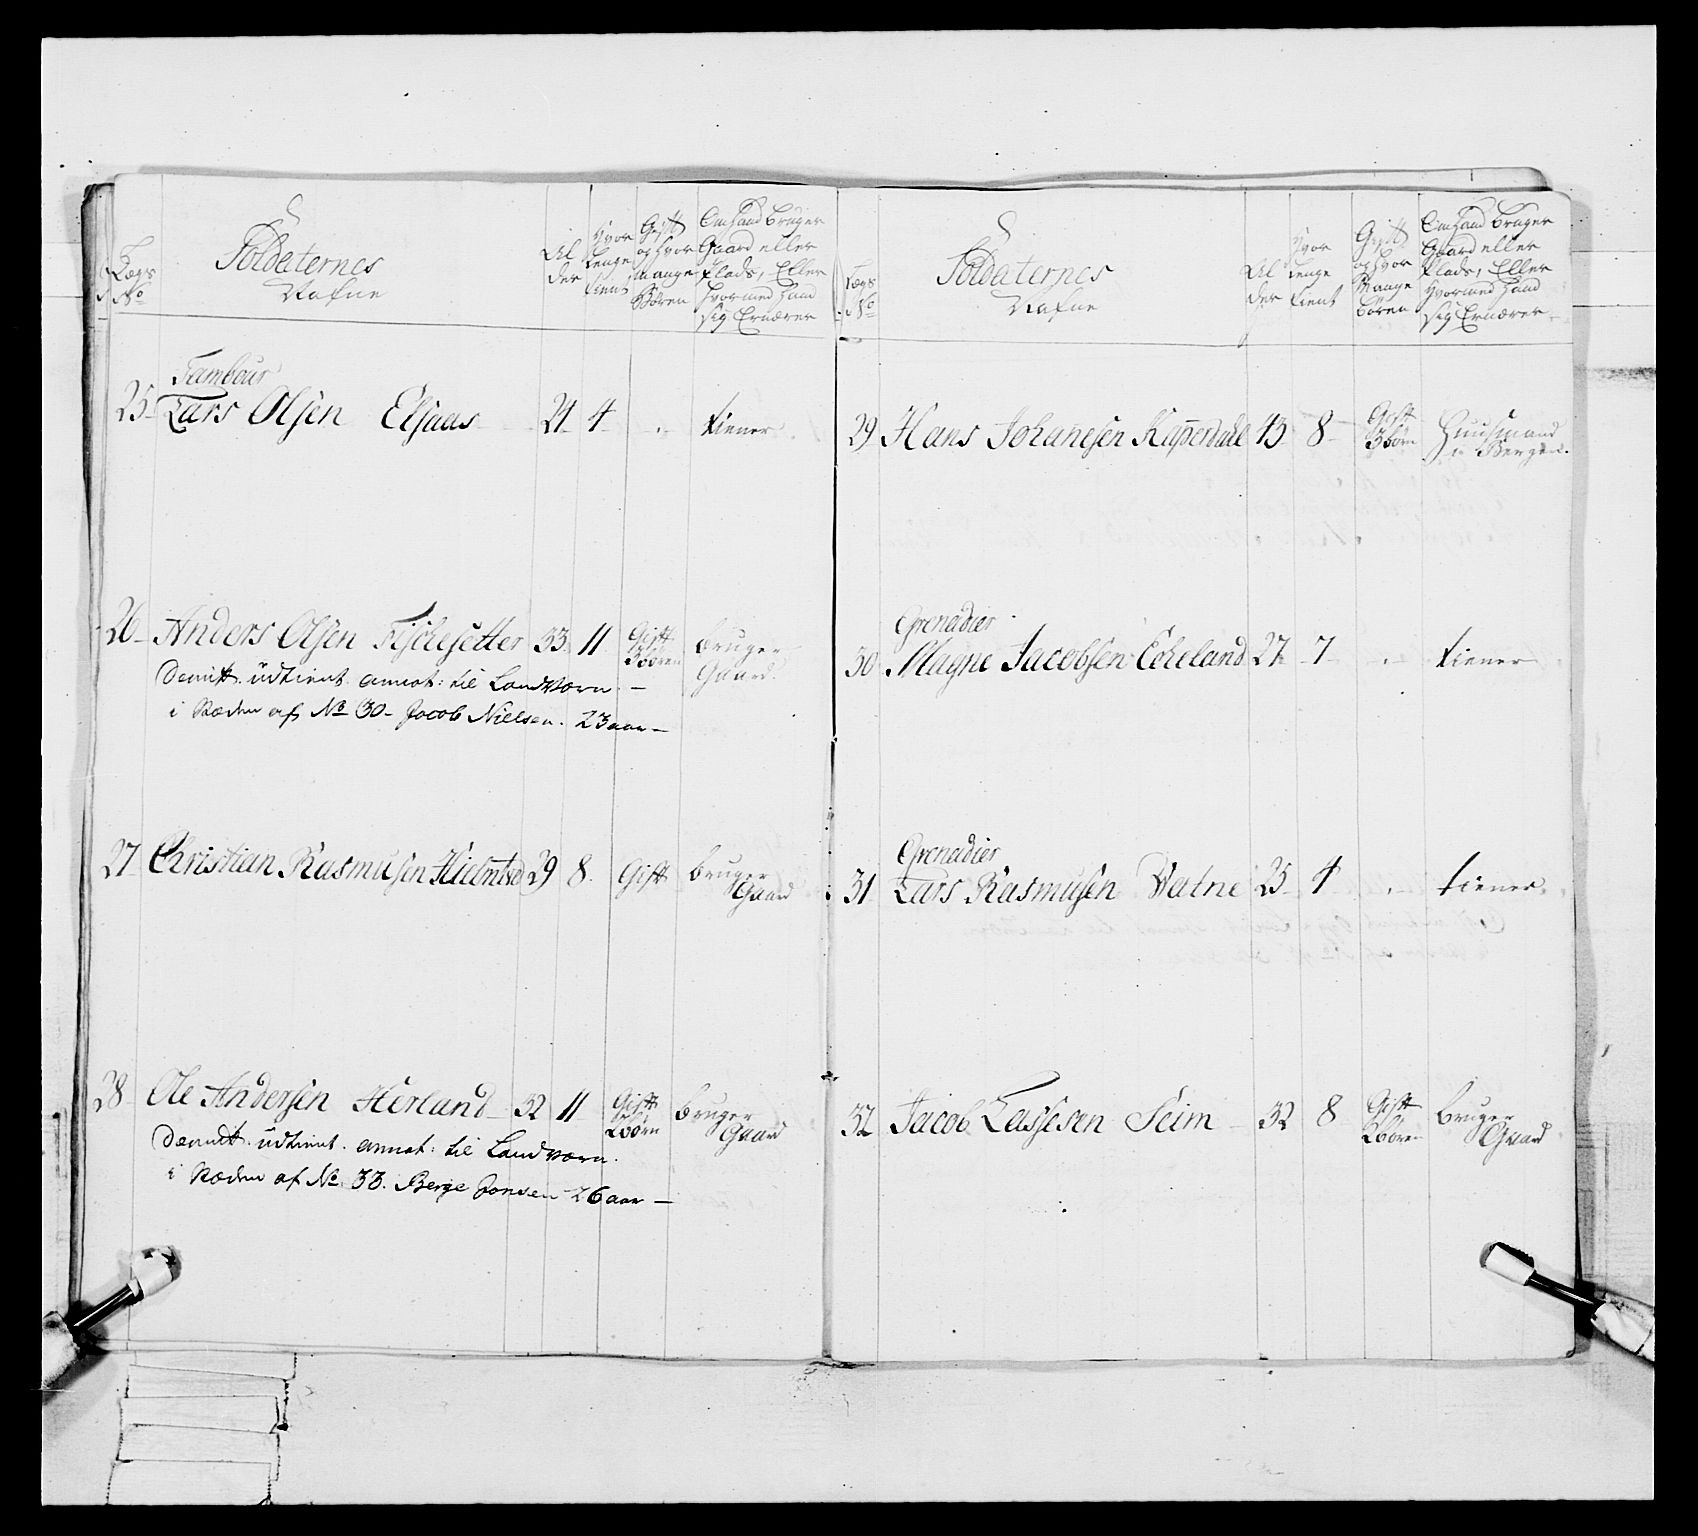 Lægs
No
Soldaternes
Nafne
Al
der
Hvor
lenge
tient
Gift
og hvor
mange
Børen
Om hand bruger
Gaard eller
Plads, Eller
hvormed hand
sig Ernærer
Tambour
25 Lars Olsen Elsaas 21 4 tiener
26 Anders Olsen Fischesetter 33 11 Gift 3 børen bruger Gaard
Demitt. udtient. annot: til Landværn.
i Steden af No 30 Jacob Nielsen. 23 aar
27 Christian Rasmusen 29 8 Gift bruger Gaard
28 Ole Andersen Herland 32 11 Gift 2 børn bruger Gaard
Demitt. udtient. annot: til Landværn.
i Steden af No 33. Berge Jonsen 26 aar
Lægs
No
Soldaternes
Nafne
Al
der
Hvor
lenge
tient
Gift
og hvor
Mange
børen
Om hand bruger
Gaard eller
Plads, Eller
hvormed hand
sig Ernærer
29 Hans Johanesen 43 8 Gift 3 børn Huusmand
i Bergen.
Grenadier
30 Magne Jacobsen Echeland 27 7 tiener
Grenadier
31 Lars Rasmusen Vatne 25 4 tiener
32 Jacob Lassesen Seim 32 8 Gift 2 børen bruger Gaard